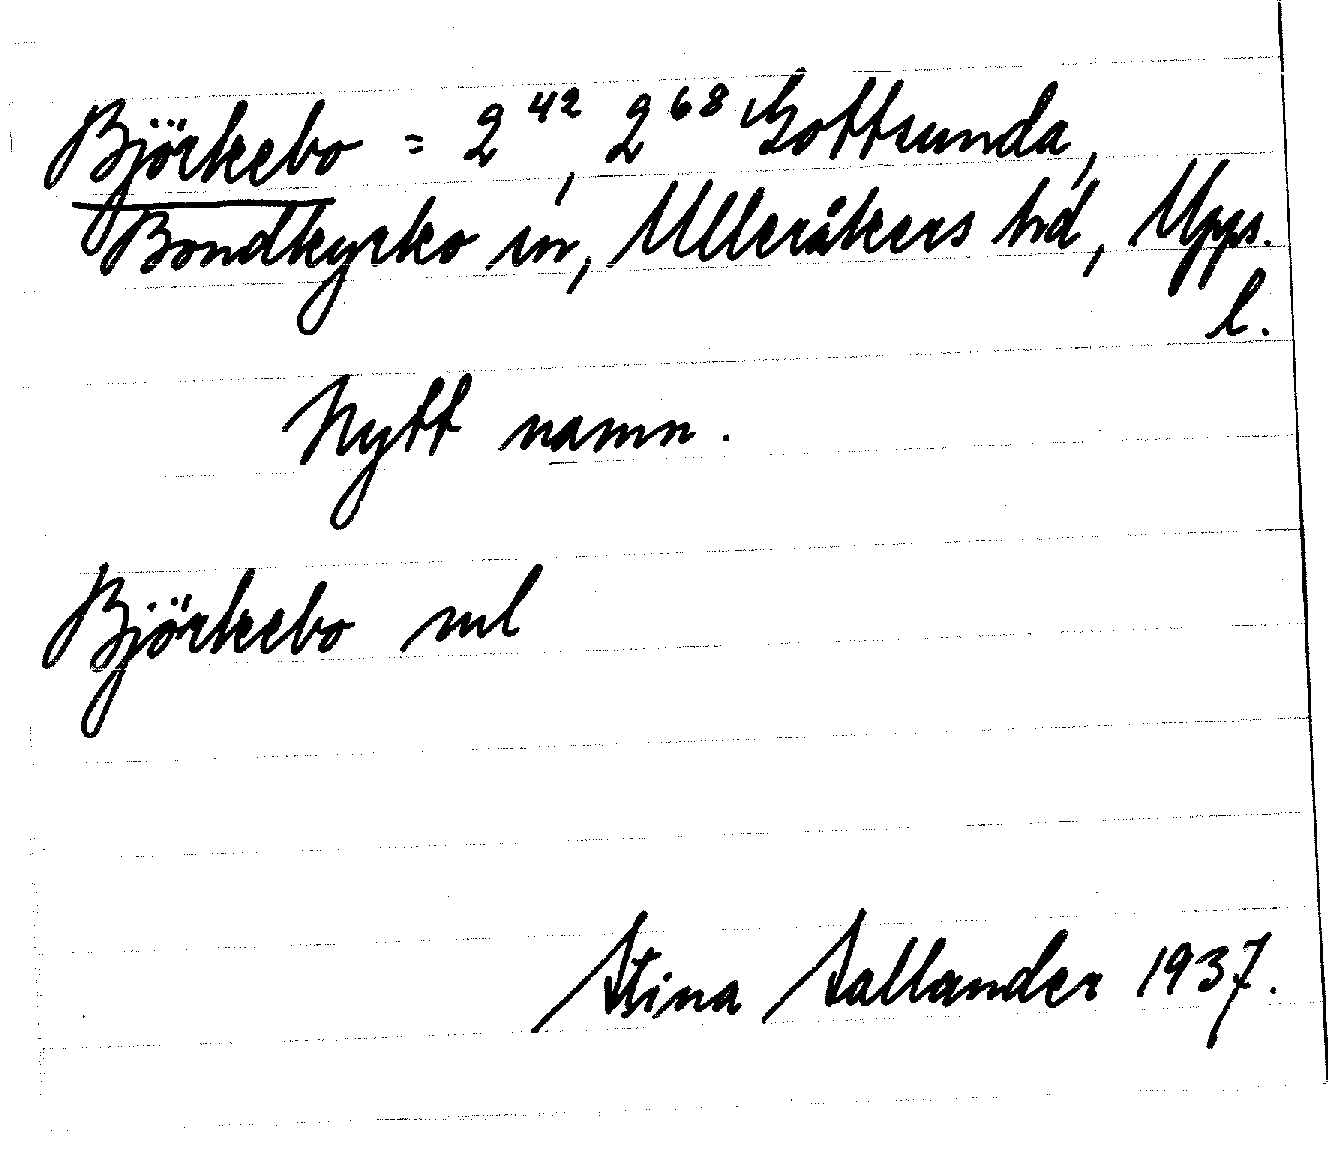 Björkebo = 2⁴², 2⁶⁸ Gottsunda,
Bondkyrko sn, Ulleråkers hd, Upps.
l.
Nytt namn.
Björkebo
Stina Sallander 1937.